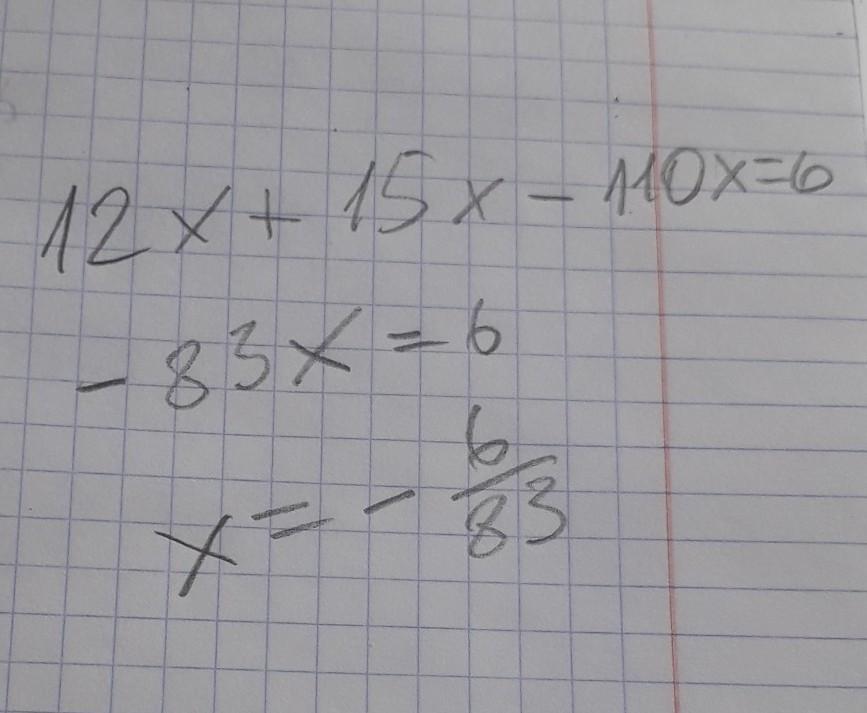 12x + 15x - 110x = 6
- 83x = 6
x = - 6/83